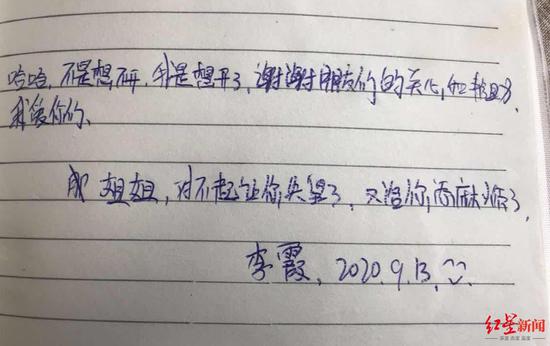 哈哈,不是想不开,我是想开了,谢谢朋友们的关心和帮助,
我爱你们、
成姐姐,对不起让你失望了,又给你添麻烦了,
李霞、2020.9.13
红星新闻
深度 态度 温度